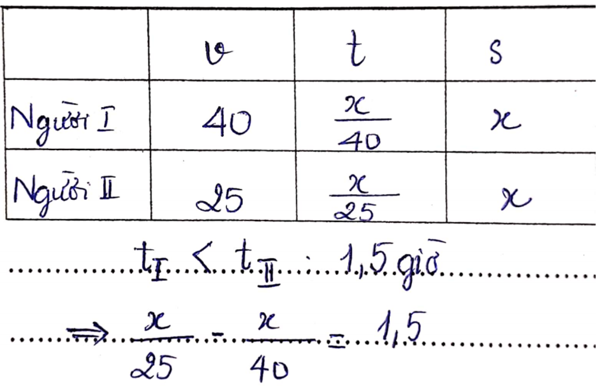 v t s
Người I 40 x/40 x
Người II 25 x/25 x
t_I < t_II : 1,5 giờ
⇒ x/25 - x/40 = 1,5